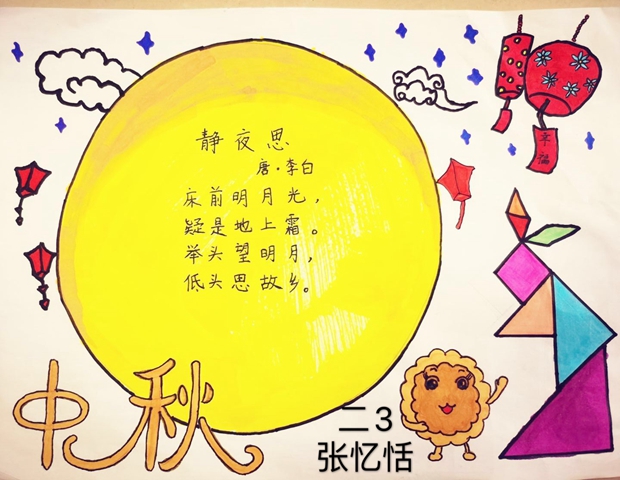 静夜思
唐·李白
床前明月光，
疑是地上霜。
举头望明月，
低头思故乡。
幸福
中秋
二3
张忆恬